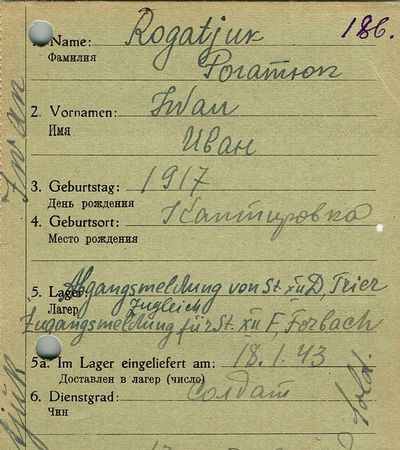 186.
1. Name: Rogatjuk
Фамилия
Рогатюк
2. Vornamen: Iwan
Имя
Иван
3. Geburtstag: 1917
День рождения
4. Geburtsort: Кантировка
Место рождения
5. Lager: Abgangsmeldung von St. XII D, Trier
Лагер
Zugleich
Zugangsmeldung für St. XII F, Forbach
5a. Im Lager eingeliefert am: 18.1.43
Доставлен в лагер (число)
6. Dienstgrad: Солдат
Чин
Sold.
Iwan